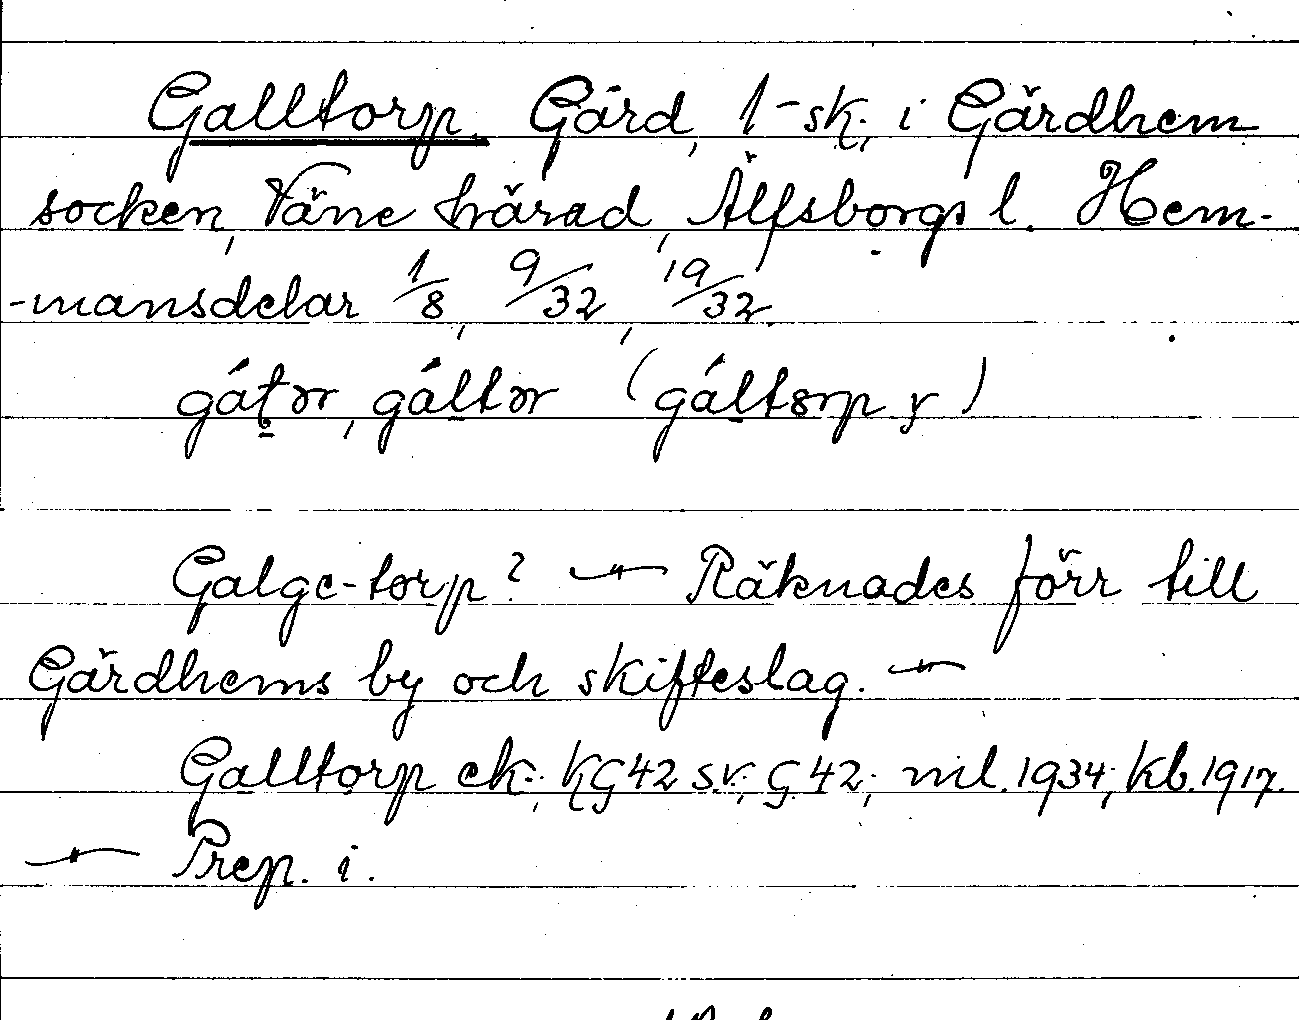 Galltorp. Gård, 1-sk., i Gärdhem
socken, Väne härad, Älfsborgs l. Hem-
-mansdelar 1/8, 9/32, 19/32.
gát̠ər, gál̠tər (gál̠tɔrp, y)
Galge-torp? — Räknades förr till
Gärdhems by och skifteslag. —
Galltorp ek.; KG42 s.v.; G 42; ml. 1934; kb. 1917.
— Prep. i.